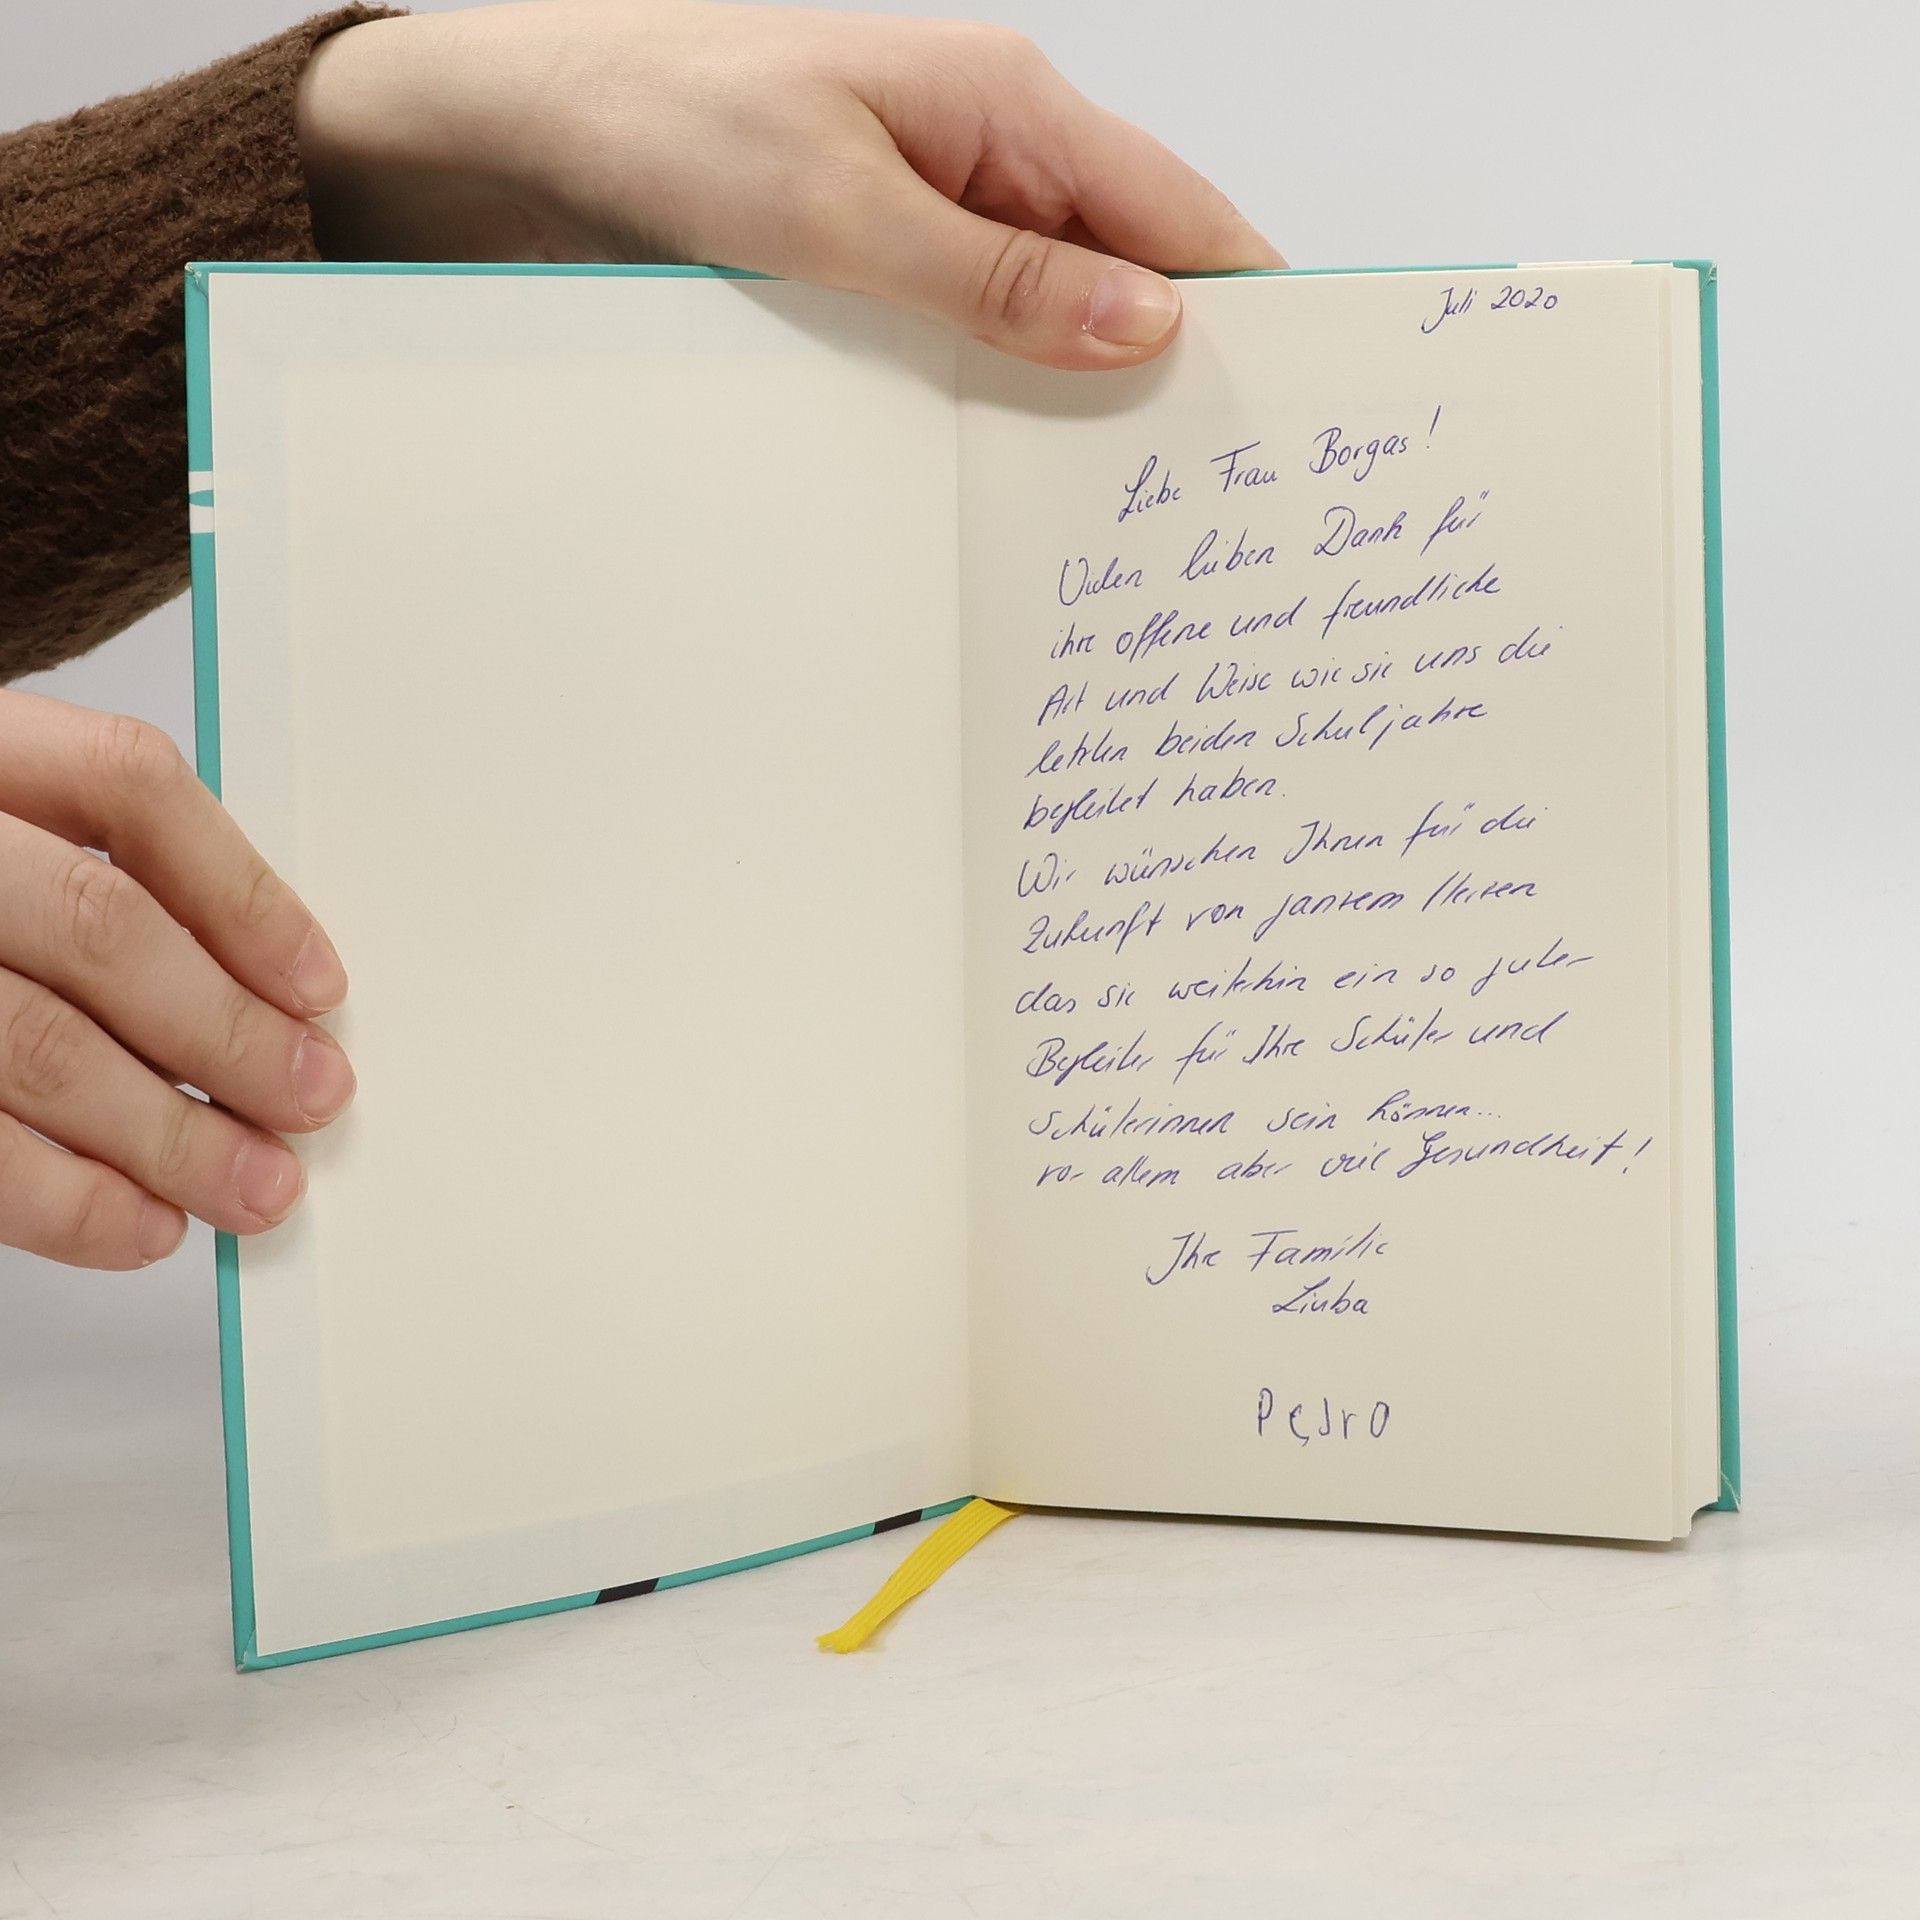 Juli 2020
Liebe Frau Borgas!
Vielen lieben Dank für
ihre offene und freundliche
Art und Weise wie sie uns die
letzten beiden Schuljahre
begleitet haben.
Wir wünschen Ihnen für die
Zukunft von ganzem Herzen
das sie weiterhin ein so guter
Begleiter für Ihre Schüler und
Schülerinnen sein können...
vor allem aber viel Gesundheit!
Ihre Familie
Liuba
Pedro